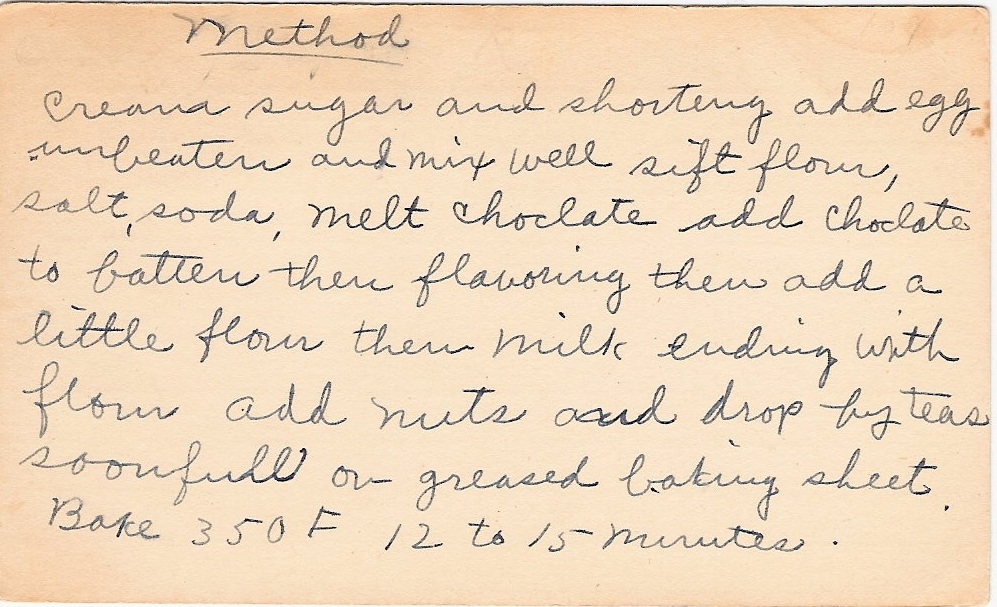 Method
Cream sugar and shorteng add egg
unbeaten and mix well sift flour,
salt, soda, melt choclate add choclate
to batter then flavoring then add a
little flour then milk ending with
flour add nuts and drop by teas
soonfull on greased baking sheet.
Bake 350 F 12 to 15 minutes.